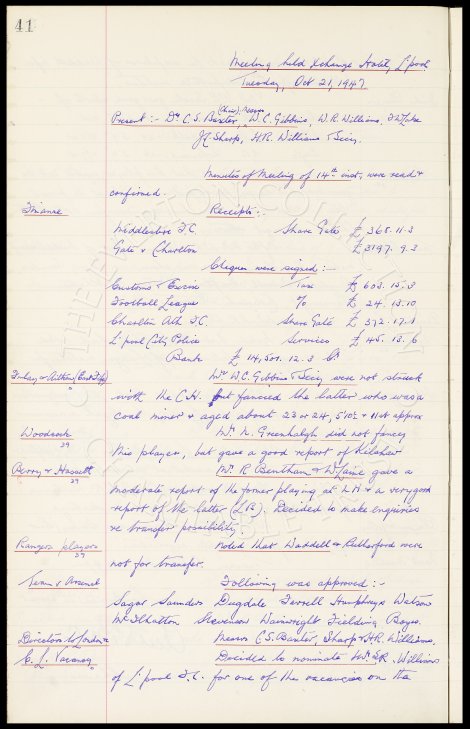 41
Meeting held Xchange Hotel, L'pool
Tuesday, Oct 21, 1947
(Chair) Messrs
Present :- Dr C.S. Baxter, W.C. Gibbins, W.R. Williams,
J.C. Sharp, H.R. Williams & Secy.
Minutes of Meeting of 14th inst, were read &
confirmed.
Finance
Receipts :-
Middlesbro F.C. Share Gate £ 365. 11. 3
Gate v Charlton £3197. 9. 3
Cheques were signed :-
Customs & Excise Tax £ 603. 15. 3
Football League % £ 24. 13. 10
Charlton Ath F.C. Share Gate £ 572. 17. 1
L'pool City Police Services £ 145. 13. 6
Bank £ 14,501. 12. 3 Cr
Finlay & Aitken (East Fife)
Mr W.C. Gibbins & Secy were not struck
with the C.H. but fancied the latter who was a
coal miner & aged about 23 or 24, 5'10½ & 11st approx
Woodcock
Mr. N. Greenhalgh did not fancy
this player, but gave a good report of Kilshaw
Perry & Hassett
Mr. R. Bentham & W. Laine gave a
moderate report of the former playing at LH & a very good
report of the latter (LB). Decided to make enquiries
re transfer possibility
Rangers players
Noted that Waddell & Rutherford were
not for transfer.
Team v Arsenal
Following was approved :-
Sagar Saunders Dugdale Farrell Humphreys Watson
McIlhatton Stevenson Wainwright Fielding Boyes.
Directors to London &
Messrs C.S. Baxter, Sharp & H.R. Williams.
E.L. Vacancy
Decided to nominate Mr S.R. Williams
of L'pool F.C. for one of the vacancies on the
THE EVERTON COLLECTION